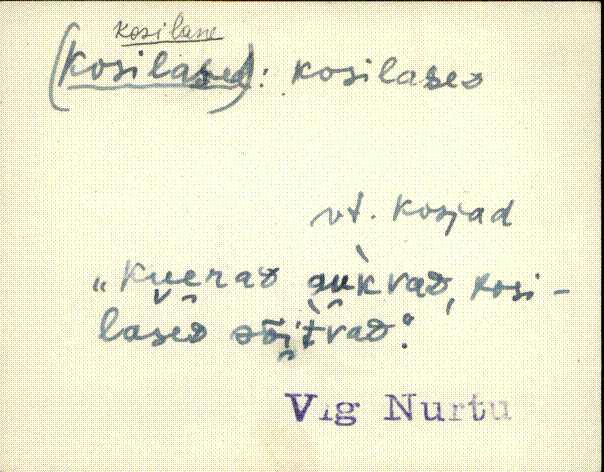 kosilane
(kosilased): kosilaseᴅ
vt. kosjad
„kueraᴅ aukvaᴅ, kosi-
laseᴅ sõitvaᴅ."
Vig Nurtu